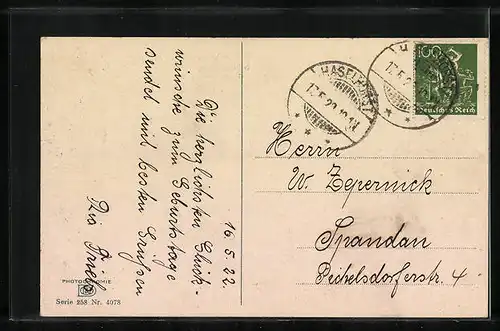 16.5.22.
Die herzlichsten Glück-
wünsche zum Geburtstage
sendet und besten Grüssen
PHOTOCHROMIE
Serie 258 Nr. 4078
HASELHORST
17.5.22.
100
Deutsches Reich
Herrn
W. Zepernick
Spandau
Pichelsdorferstr. 4